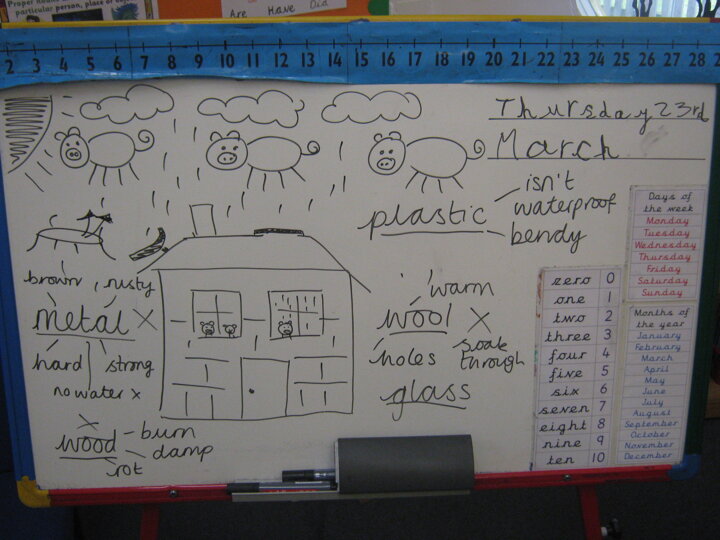 particular person, place or
Are Have Did
2 3 4 5 6 7 8 9 10 11 12 13 14 15 16 17 18 19 20 21 22 23 24 25 26 27 28
Thursday 23rd
March
plastic
isn't
waterproof
bendy
brown, rusty
metal X
hard strong
no water x
X
wood
burn
damp
rot
warm
wool X
holes
soak
through
glass
zero 0
one 1
two 2
three 3
four 4
five 5
six 6
seven 7
eight 8
nine 9
ten 10
Days of
the week
Monday
Tuesday
Wednesday
Thursday
Friday
Saturday
Sunday
Months of
the year
January
February
March
April
May
June
July
August
September
October
November
December